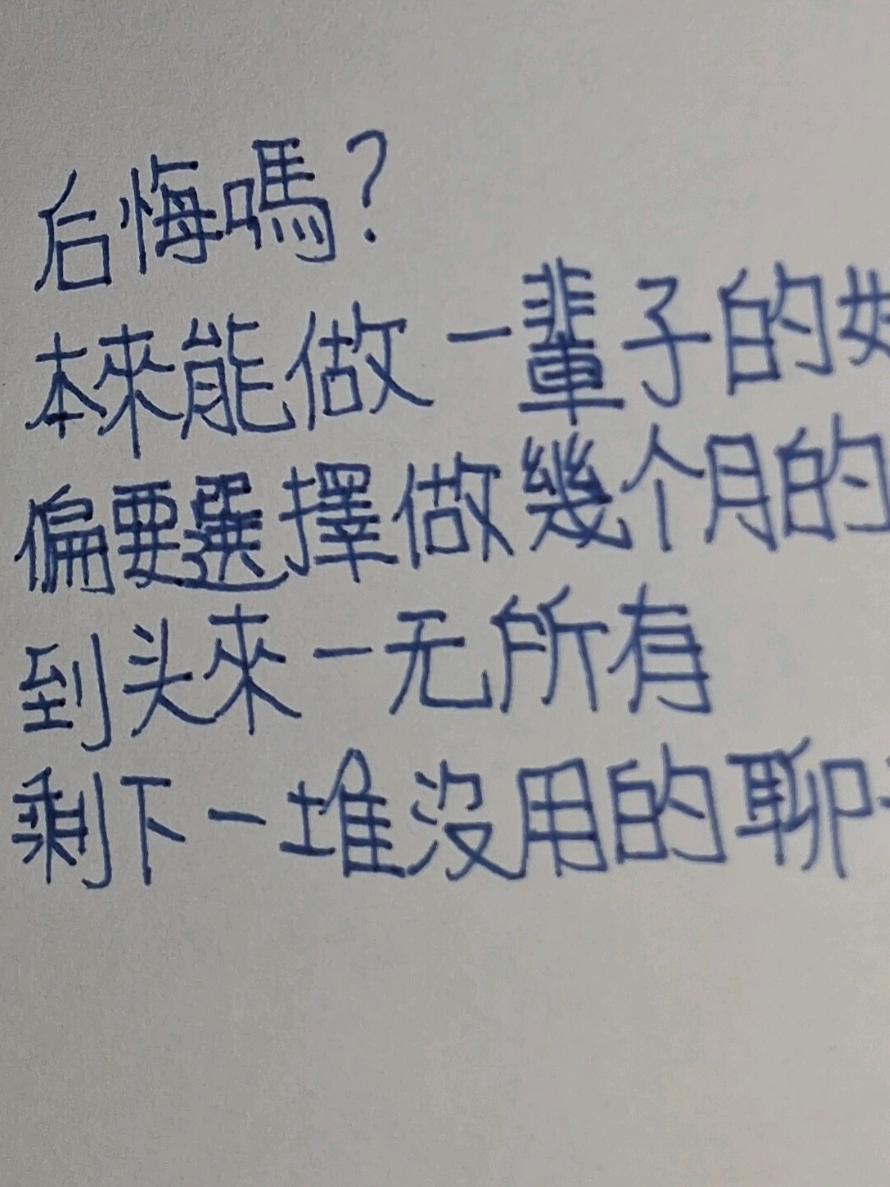 后悔嗎?
本來能做一輩子的
偏要選擇做幾个月的
到头來一无所有
剩下一堆沒用的聊